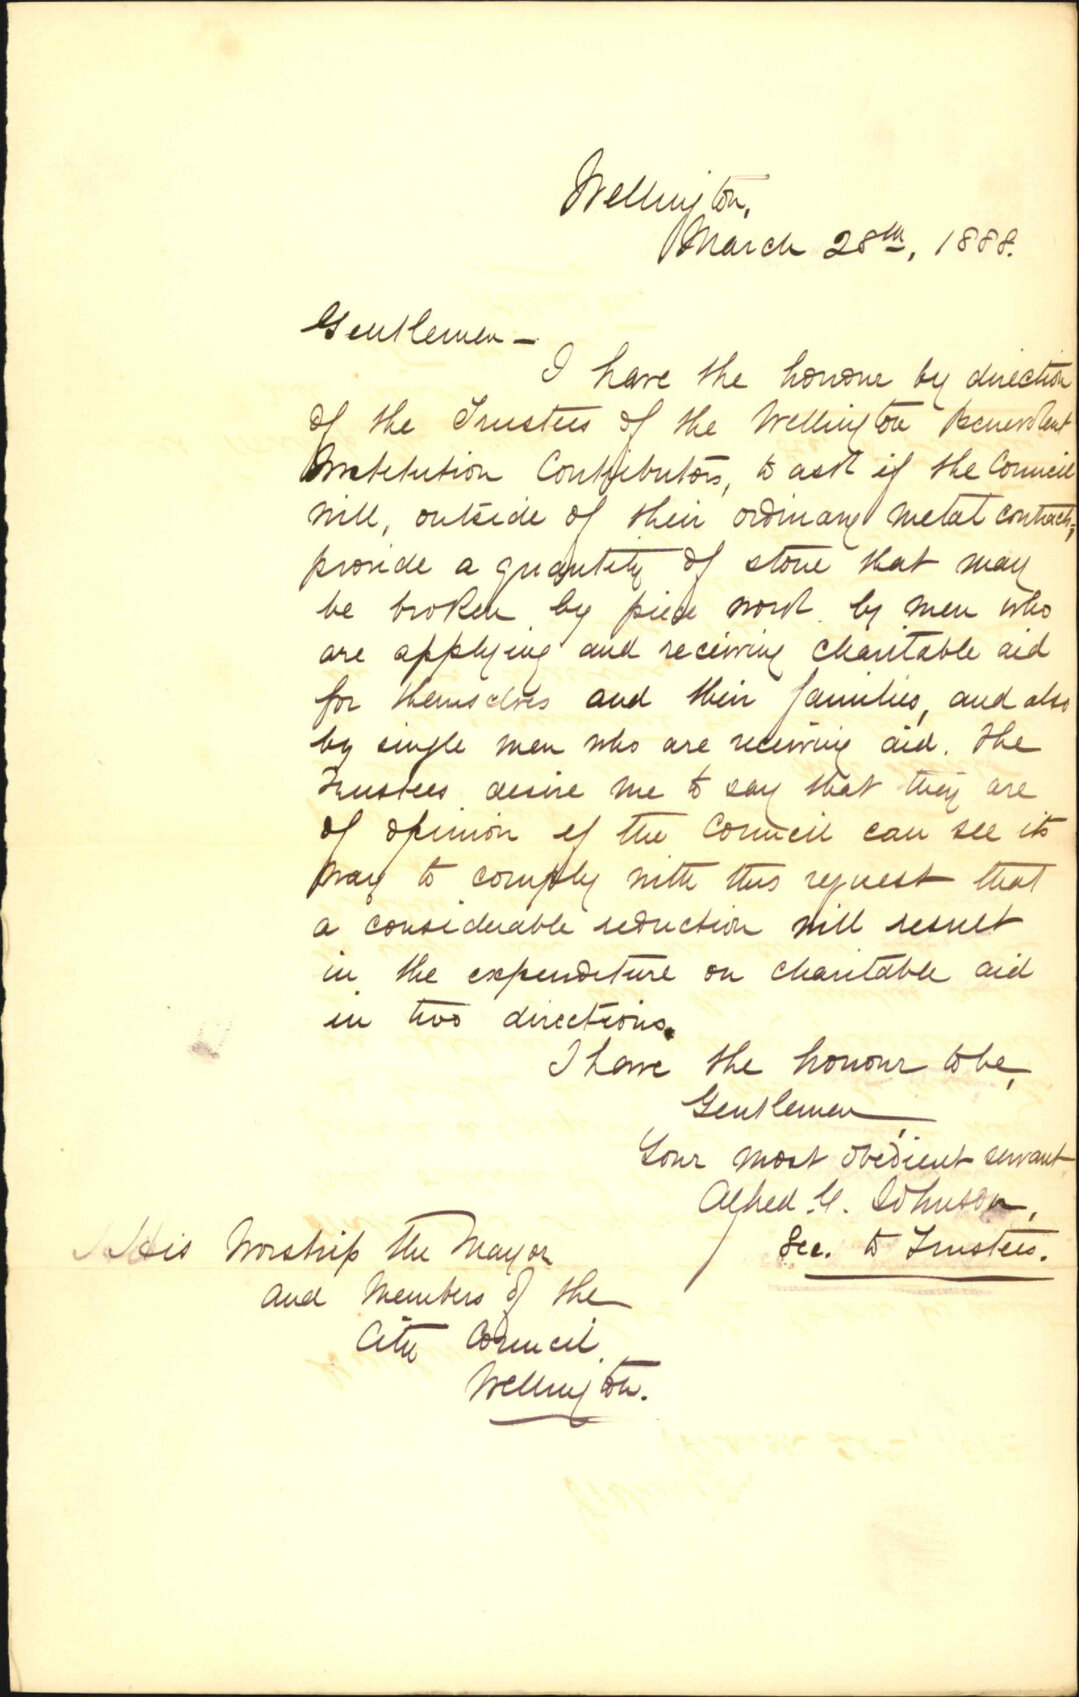 Wellington,
March 28th, 1888.
Gentlemen —
I have the honour by direction
of the Trustees of the Wellington Benevolent
Institution Contributors, to ask if the Council
will, outside of their ordinary metal contracts,
provide a quantity of stone that may
be broken by piece work by men who
are applying and receiving charitable aid
for themselves and their families, and also
by single men who are receiving aid. The
Trustees desire me to say that they are
of opinion if the Council can see its
way to comply with this request that
a considerable reduction will result
in the expenditure on charitable aid
in two directions.
I have the honour to be,
Gentlemen,
Your most obedient servant
Alfred G. Johnson,
Sec. to Trustees.
His Worship the Mayor
and Members of the
City Council
Wellington.